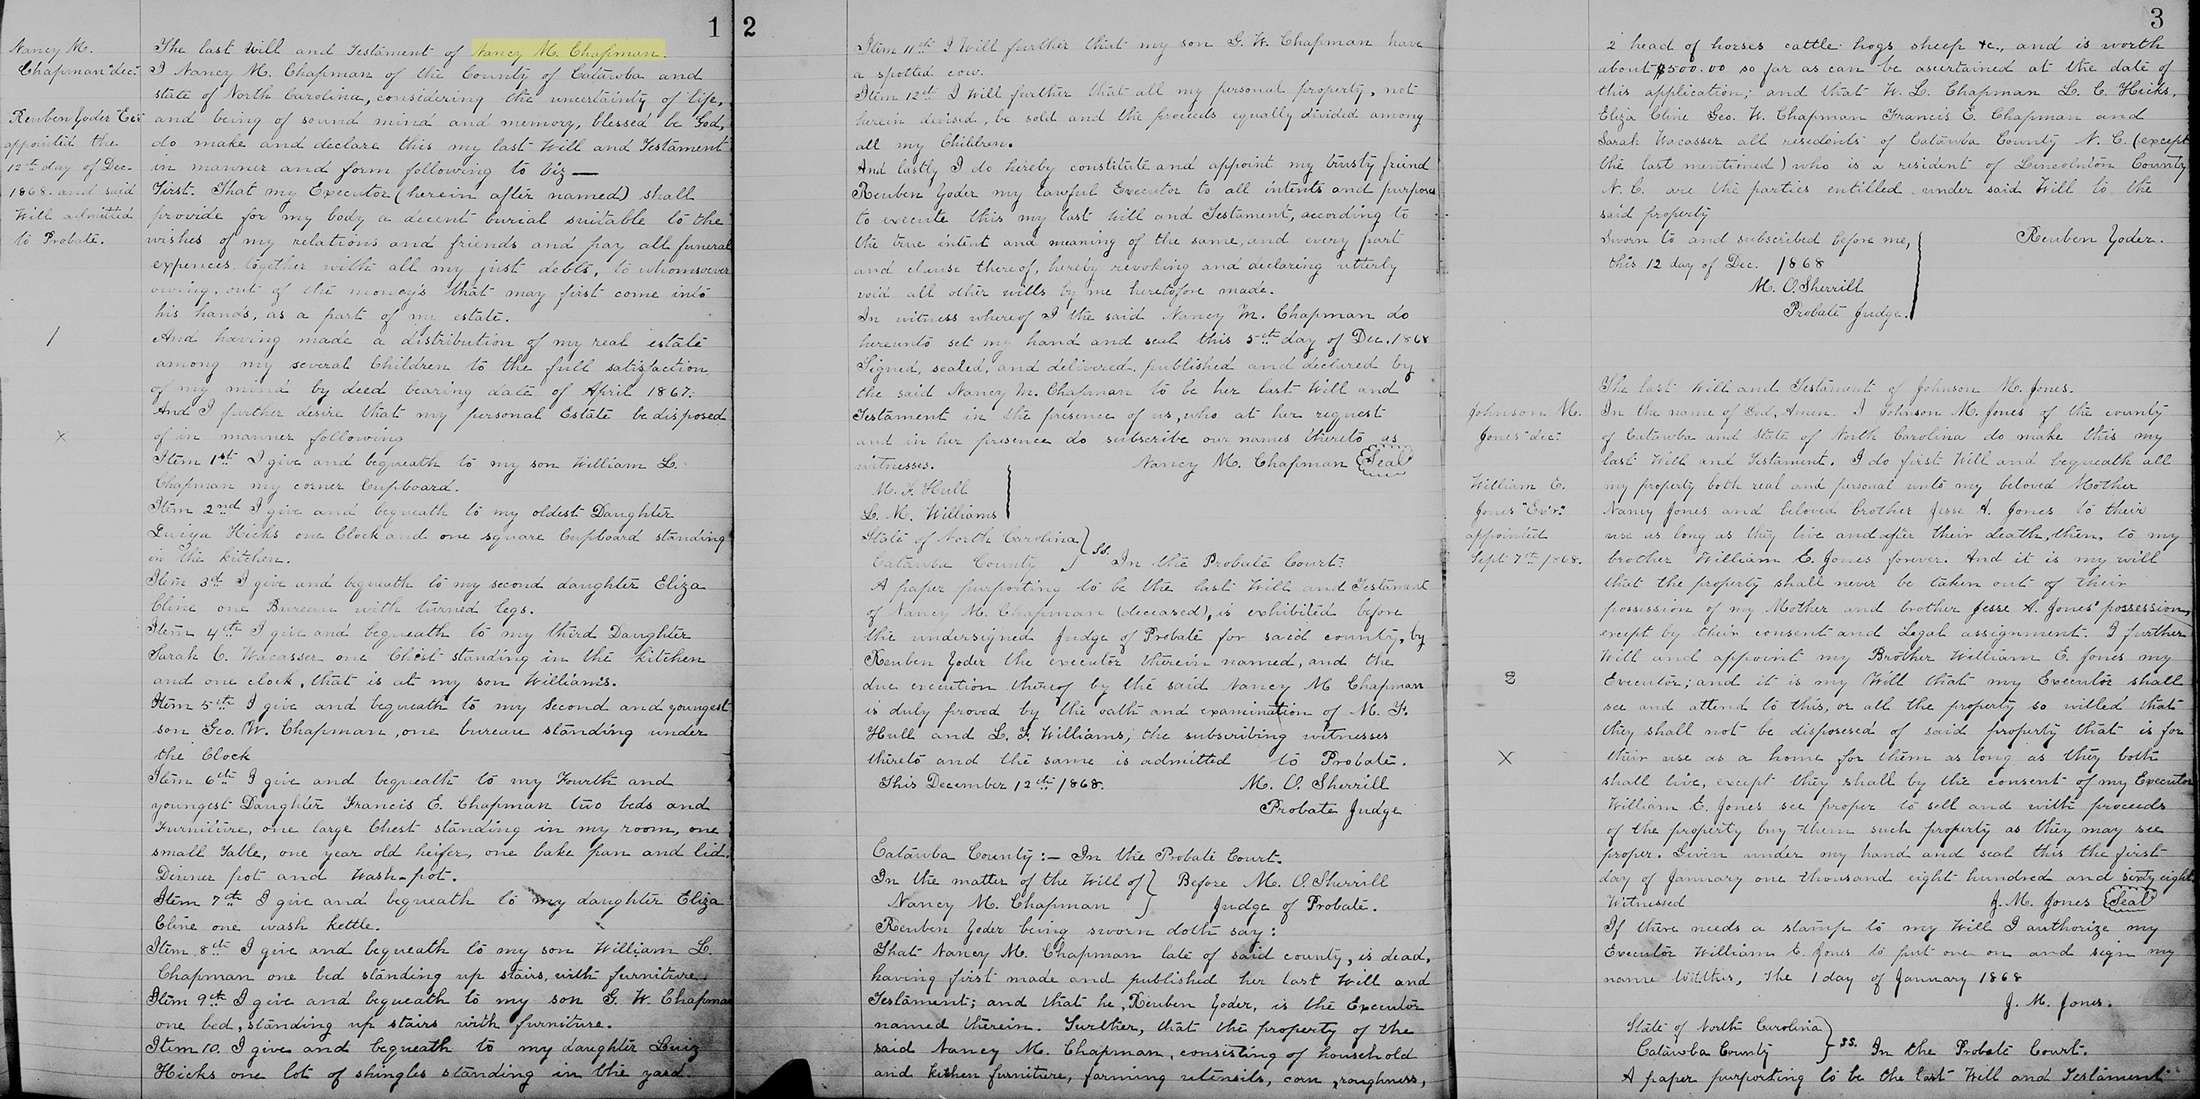 1
Nancy M.
Chapman "dec."
Reuben Yoder "Exr"
appointed the
12th day of Dec.
1868. and said
Will admitted
to Probate.
The last Will and Testament of Nancy M. Chapman.
I Nancy M. Chapman of the County of Catawba and
state of North Carolina, considering the uncertainty of life,
and being of sound mind and memory, blessed be God,
do make and declare this my last Will and Testament
in manner and form following to viz—
First. That my Executor (herein after named) shall
provide for my body a decent burial suitable to the
wishes of my relations and friends and pay all funeral
expences together with all my just debts, to whomsoever
owing, out of the money's that may first come into
his hands, as a part of my estate.
And having made a distribution of my real estate
among my several Children to the full satisfaction
of my mind by deed bearing date of April 1867.
And I further desire that my personal Estate be disposed
of in manner following
Item 1st I give and bequeath to my son William L.
Chapman my corner Cupboard.
Item 2nd I give and bequeath to my oldest Daughter
Hicks one Clock and one square Cupboard standing
in the kitchen.
Item 3d I give and bequeath to my second daughter Eliza
Cline one Bureau with turned legs.
Item 4th I give and bequeath to my third Daughter
Sarah C. Wacasser one Chest standing in the kitchen
and one clock, that is at my son William's.
Item 5th I give and bequeath to my Second and youngest
son Geo. W. Chapman, one bureau standing under
the Clock
Item 6th I give and bequeath to my Fourth and
youngest Daughter Francis E. Chapman two beds and
Furniture, one large Chest standing in my room, one
small Table, one year old heifer, one bake pan and lid,
Dinner pot and Wash-pot.
Item 7th I give and bequeath to my daughter Eliza
Cline one wash kettle.
Item 8th I give and bequeath to my son William L.
Chapman one bed standing up stairs, with furniture.
Item 9th I give and bequeath to my son G. W. Chapman
one bed, standing up stairs with furniture.
Item 10. I give and bequeath to my daughter
Hicks one lot of shingles standing in the yard.
2
Item 11th I Will further that my son G. W. Chapman have
a spotted cow.
Item 12th I Will further that all my personal property, not
herein devised, be sold and the proceeds equally divided among
all my Children.
And lastly I do hereby constitute and appoint my trusty friend
Reuben Yoder my lawful Executor to all intents and purposes
to execute this my last Will and Testament, according to
the true intent and meaning of the same, and every part
and clause thereof, hereby revoking and declaring utterly
void all other wills by me heretofore made.
In witness whereof I the said Nancy M. Chapman do
hereunto set my hand and seal this 5th day of Dec. 1868
Signed, sealed, and delivered, published and declared by
the said Nancy M. Chapman to be her last Will and
Testament in the presence of us, who at her request
and in her presence do subscribe our names thereto as
witnesses.
Nancy M. Chapman Seal
M. F. Hull
L. M. Williams
State of North Carolina
Catawba County ss. In the Probate Court.
A paper purporting to be the last Will and Testament
of Nancy M. Chapman (deceased), is exhibited before
the undersigned Judge of Probate for said county, by
Reuben Yoder the executor therein named, and the
due execution thereof by the said Nancy M Chapman
is duly proved by the oath and examination of M. F.
Hull and L. F. Williams, the subscribing witnesses
thereto and the same is admitted to Probate.
This December 12th 1868.
M. O. Sherrill
Probate Judge
Catawba County:— In the Probate Court.
In the matter of the Will of Before M. O. Sherrill
Nancy M. Chapman Judge of Probate.
Reuben Yoder being sworn doth say:
That Nancy M. Chapman late of said county, is dead,
having first made and published her last Will and
Testament; and that he, Reuben Yoder, is the Executor
named therein. Further, that the property of the
said Nancy M. Chapman, consisting of household
and kithen furniture, farming utensils, corn, roughness,
3
2 head of horses cattle hogs sheep &c., and is worth
about $500.00 so far as can be ascertained at the date of
this application; and that W. L. Chapman L. C. Hicks,
Eliza Cline Geo. W. Chapman Francis E. Chapman and
Sarah Wacasser all residents of Catawba County N. C. (except
the last mentioned) who is a resident of Lincolnton County
N. C. are the parties entilled under said Will to the
said property
Sworn to and subscribed before me,
this 12 day of Dec. 1868
Reuben Yoder.
M. O. Sherrill
Probate Judge.
Johnson M.
Jones "dec."
William E.
Jones "Ex'r."
appointed
Sept 7th 1868.
The last Will and Testament of Johnson M. Jones.
In the name of God, Amen. I Johnson M. Jones of the county
of Catawba and State of North Carolina do make this my
last Will and Testament. I do first Will and bequeath all
my property both real and personal unto my beloved Mother
Nancy Jones and beloved brother Jesse A. Jones to their
use as long as they live and after their death, then, to my
brother William E. Jones forever. And it is my will
that the property shall never be taken out of their
possession of my Mother and brother Jesse A. Jones' possession,
except by their consent and Legal assignment. I further
Will and appoint my Brother William E. Jones my
Executor; and it is my Will that my Executor shall
see and attend to this, or all the property so willed that
they shall not be disposesed of said property that is for
their use as a home for them as long as they both
shall live, except they shall by the consent of my Executor
William E. Jones see proper to sell and with proceeds
of the property buy them such property as they may see
proper. Given under my hand and seal this the first
day of January one thousand eight hundred and sixty eight.
Witnessed
J. M. Jones Seal
If there needs a stamp to my Will I authorize my
Executor William E. Jones to put one on and sign my
name to this, the 1 day of January 1868
J. M. Jones.
State of North Carolina
Catawba County ss. In the Probate Court.
A paper purporting to be the last Will and Testament